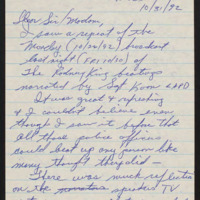 10/31/92
Dear Sir/Madam,
I saw a repeat of the
Monday (10/26/92) broadcast
last night (FRI 10/30) of
The Rodney King beatings
narrated by Sgt Koon LAPD
It was great & refreshing
& I couldn't believe even
though I saw it before that
all those police officers
could beat up one person like
many thought they did —
There was much reflection
on the speeded TV